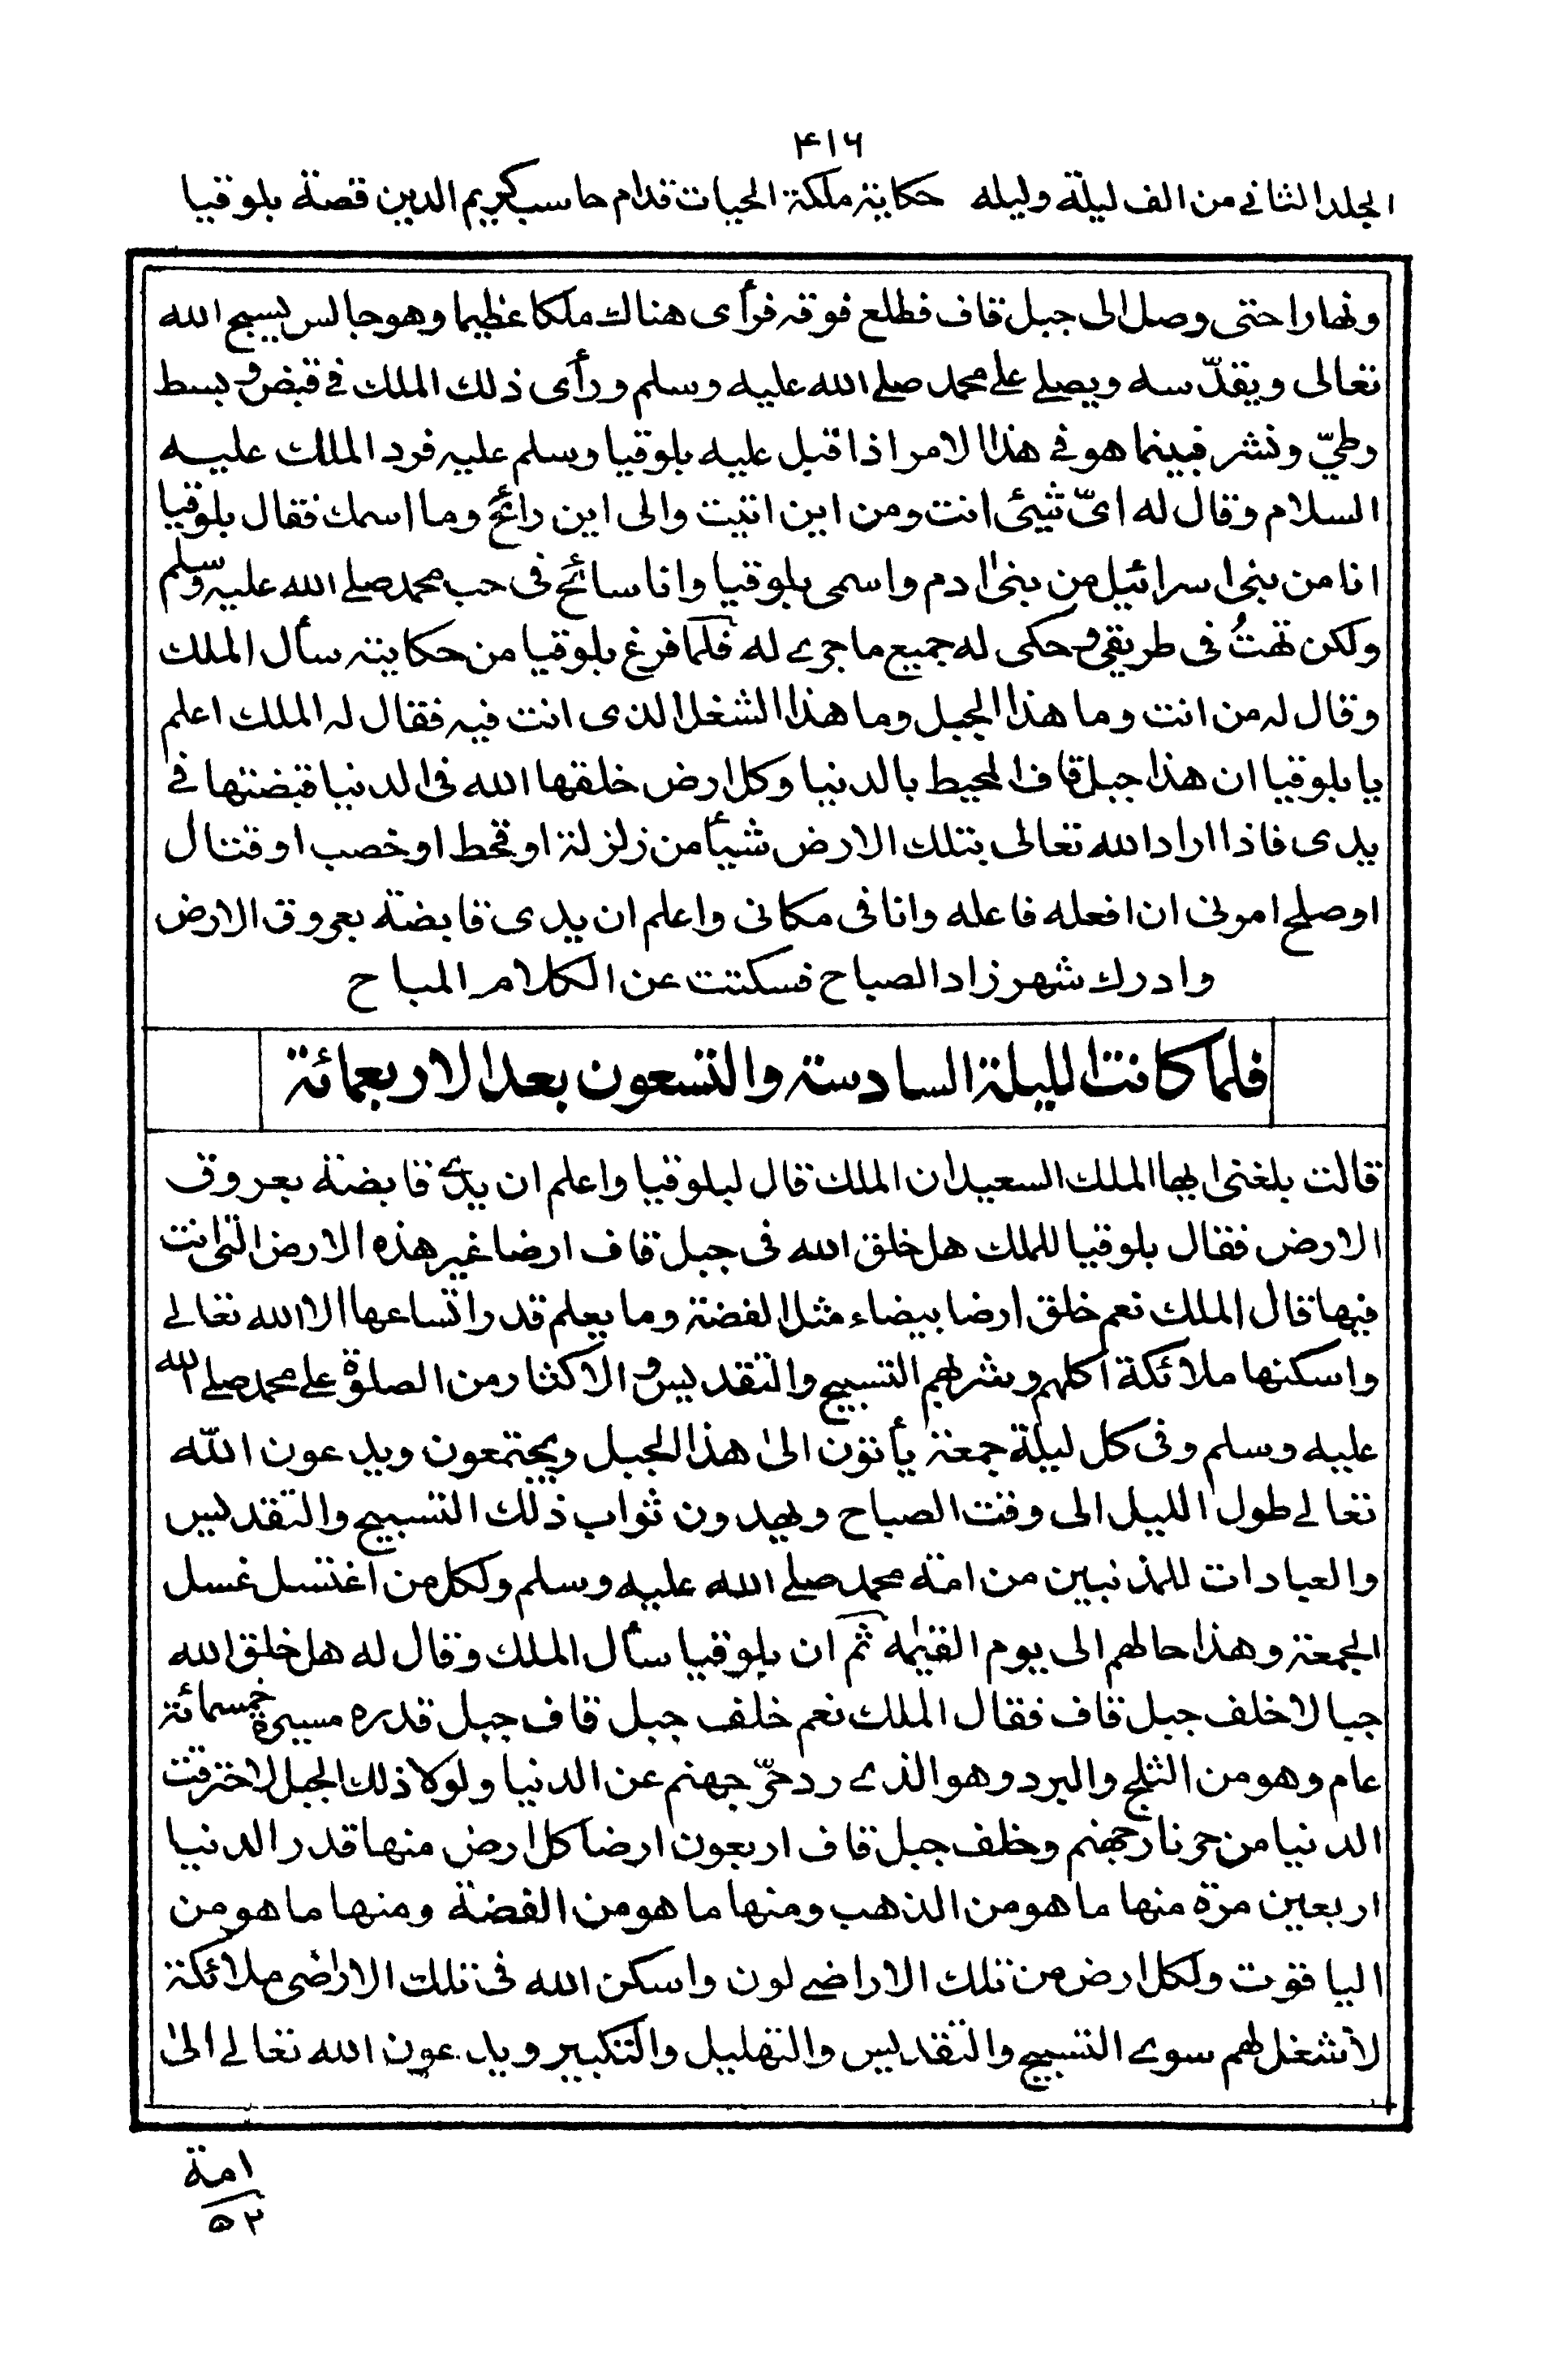 ۴۱۶
الجلد الثاني من الف ليلة وليله حكاية ملكة الحيات قدام حاسب كريم الدين قصة بلوقيا
ونهارا حتى وصل الى جبل قاف فطلع فوقه فرأى هناك ملكا عظيما وهو جالس يسبح الله
تعالى ويقدّسه ويصلے علے محمد صلے الله عليه وسلم ورأى ذلك الملك فے قبض وبسط
وطيّ ونشر فبينما هو فے هذا الامر اذا قبل عليه بلوقيا وسلم عليه فرد الملك عليه
السلام وقال له ايّ شيئ انت ومن اين اتيت والى اين رائح وما اسمك فقال بلوقيا
انا من بنى اسرائيل من بنى ادم واسمى بلوقيا وانا سائح فى حب محمد صلے الله عليه وسلم
ولكن تهتُ فى طريقى وحكى له جميع ما جرے له فلما فرغ بلوقيا من حكايته سأل الملك
وقال له من انت وما هذا الجبل وما هذا الشغل الذى انت فيه فقال له الملك اعلم
يا بلوقيا ان هذا جبل قاف المحيط بالدنيا وكل ارض خلقها الله فى الدنيا قبضتها فے
يدى فاذا اراد الله تعالى بتلك الارض شيأ من زلزلة او قحط او خصب او قتال
او صلح امرنى ان افعله فاعله وانا فى مكانى واعلم ان يدى قابضة بعروق الارض
وادرك شهرزاد الصباح فسكتت عن الكلام المباح
فلما كانت الليلة السادسة والتسعون بعد الاربعمائة
قالت بلغنى ايها الملك السعيد ان الملك قال لبلوقيا واعلم ان يدے قابضة بعروق
الارض فقال بلوقيا للملك هل خلق الله فى جبل قاف ارضا غير هذه الارض التى انت
فيها قال الملك نعم خلق ارضا بيضاء مثل الفضة وما يعلم قدر اتساعها الا الله تعالے
واسكنها ملائكة اكلهم وشربهم التسبيح والتقديس والاكثار من الصلوة علے محمد صلے الله
عليه وسلم وفى كل ليلة جمعة يأتون الىٰ هذا الجبل ويجتمعون ويدعون اللّه
تعالے طول الليل الى وقت الصباح ويهدون ثواب ذلك التسبيح والتقديس
والعبادات للمذنبين من امة محمد صلے الله عليه وسلم ولكل من اغتسل غسل
الجمعة وهذا حالهم الى يوم القيٰمة ثم ان بلوقيا سأل الملك وقال له هل خلق الله
جبالا خلف جبل قاف فقال الملك نعم خلف جبل قاف جبل قدره مسيرة خمسمائة
عام وهو من الثلج والبرد وهو الذے رد حرّ جهنم عن الدنيا ولولا ذلك الجبل لاحترقت
الدنيا من حر نار جهنم وخلف جبل قاف اربعون ارضا كل ارض منها قدر الدنيا
اربعين مرة منها ما هو من الذهب ومنها ما هو من الفضة ومنها ما هو من
الياقوت ولكل ارض من تلك الاراضے لون واسكن الله فى تلك الاراضى ملائكة
لا شغل لهم سوے التسبيح والتقديس والتهليل والتكبير ويدعون الله تعالے الىٰ
امة
۵۲